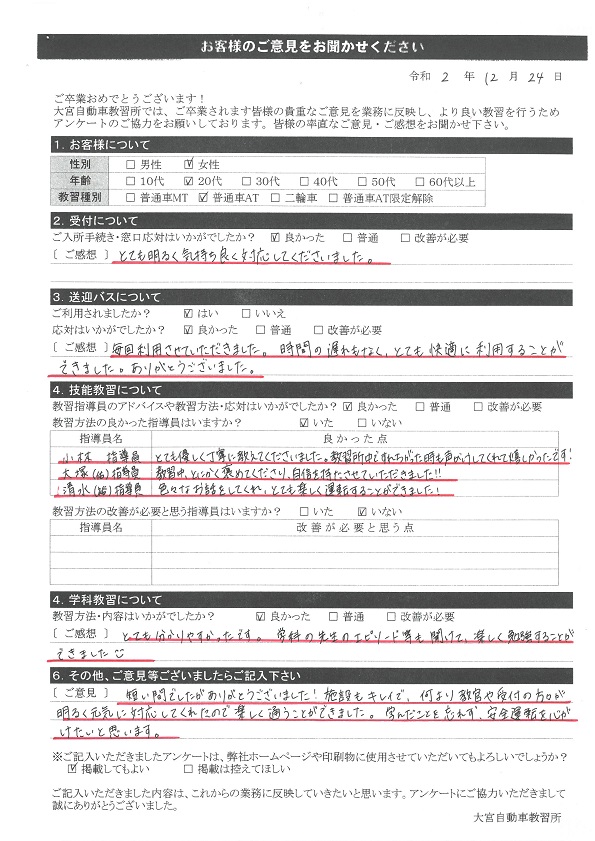 お客様のご意見をお聞かせください
令和 2 年 12 月 24 日
ご卒業おめでとうございます！
大宮自動車教習所では、ご卒業されます皆様の貴重なご意見を業務に反映し、より良い教習を行うため
アンケートのご協力をお願いしております。皆様の率直なご意見・ご感想をお聞かせ下さい。
1. お客様について
性別 □ 男性 ☑ 女性
年齢 □ 10代 ☑ 20代 □ 30代 □ 40代 □ 50代 □ 60代以上
教習種別 □ 普通車MT ☑ 普通車AT □ 二輪車 □ 普通車AT限定解除
2. 受付について
ご入所手続き・窓口応対はいかがでしたか？ ☑ 良かった □ 普通 □ 改善が必要
〔 ご感想 〕 とても明るく気持ち良く対応してくださいました。
3. 送迎バスについて
ご利用されましたか？ ☑ はい □ いいえ
応対はいかがでしたか？ ☑ 良かった □ 普通 □ 改善が必要
〔 ご感想 〕 毎回利用させていただきました。時間の遅れもなく、とても快適に利用することが
できました。ありがとうございました。
4. 技能教習について
教習指導員のアドバイスや教習方法・応対はいかがでしたか？ ☑ 良かった □ 普通 □ 改善が必要
教習方法の良かった指導員はいますか？ ☑ いた □ いない
指導員名 良かった点
小林 指導員 とても優しく丁寧に教えてくださいました。教習所内ですれちがった時も声かけしてくれて嬉しかったです！
大塚 指導員 教習中、とにかく褒めてくださり、自信を持たせていただきました！！
清水 指導員 色々なお話をしてくれ、とても楽しく運転することができました！
教習方法の改善が必要と思う指導員はいますか？ □ いた ☑ いない
指導員名 改善が必要と思う点
4. 学科教習について
教習方法・内容はいかがでしたか？ ☑ 良かった □ 普通 □ 改善が必要
〔 ご感想 〕 とても分かりやすかったです。学科の先生のエピソード等も聞けて、楽しく勉強することが
できました☺
6. その他、ご意見等ございましたらご記入下さい
〔 ご意見 〕 短い間でしたがありがとうございました！施設もキレイで、何より教官や受付の方々が
明るく元気に対応してくれたので楽しく通うことができました。学んだことを忘れず、安全運転を心が
けたいと思います。
※ご記入いただきましたアンケートは、弊社ホームページや印刷物に使用させていただいてもよろしいでしょうか？
☑ 掲載してもよい □ 掲載は控えてほしい
ご記入いただきました内容は、これからの業務に反映していきたいと思います。アンケートにご協力いただきまして
誠にありがとうございました。
大宮自動車教習所